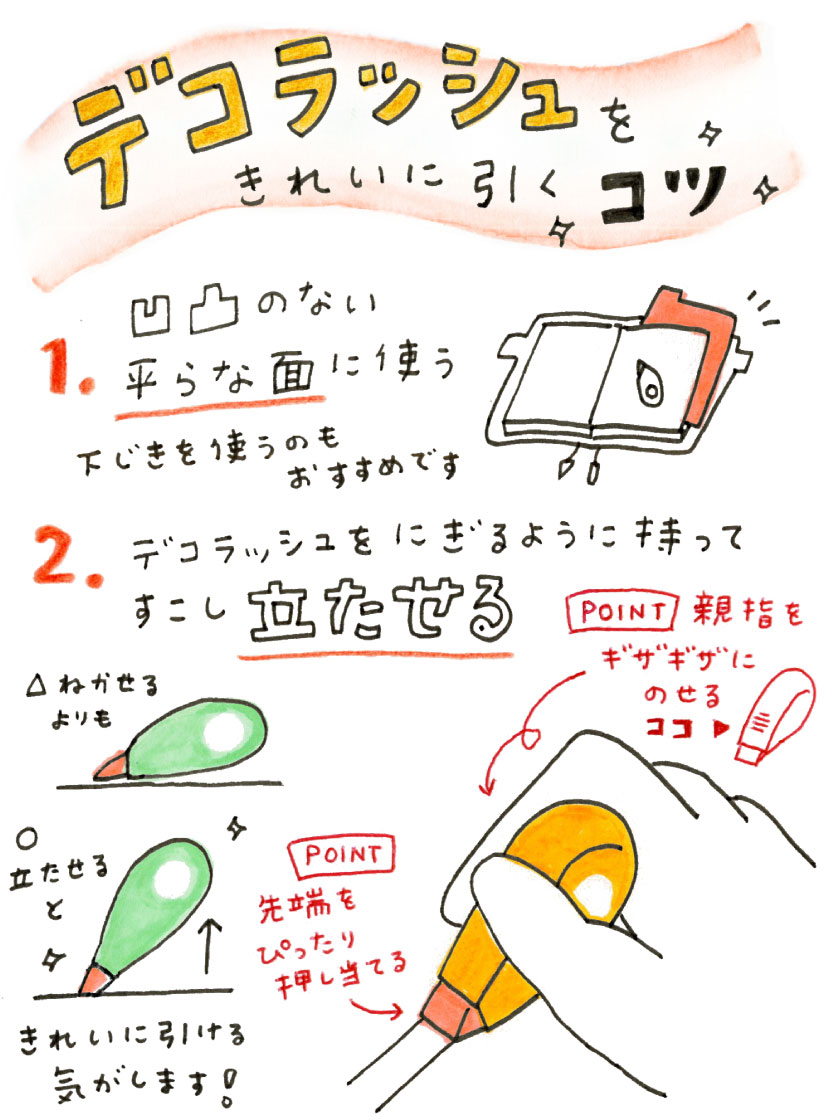 デコラッシュを
きれいに引くコツ
1. 凹凸のない
平らな面に使う
下じきを使うのも
おすすめです
2. デコラッシュをにぎるように持って
すこし立たせる
POINT 親指を
ギザギザに
のせる
ココ▶
△ねかせる
よりも
○
立たせる
と
きれいに引ける
気がします!
POINT
先端を
ぴったり
押し当てる